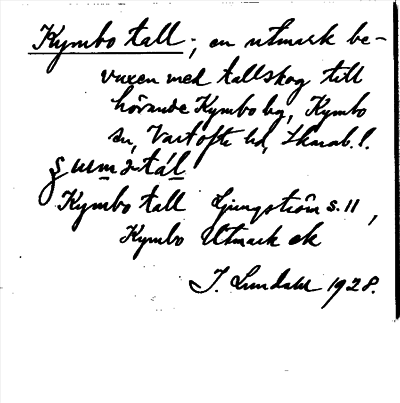 Kymbo tall; en utmark be-
vuxen med tallskog till
hörande Kymbo by, Kymbo
sn, Vartofta hd, Skarab. l.
Kymbo tall Ljungström s. 11,
Kymbo Utmark ek
J. Lundahl 1928.